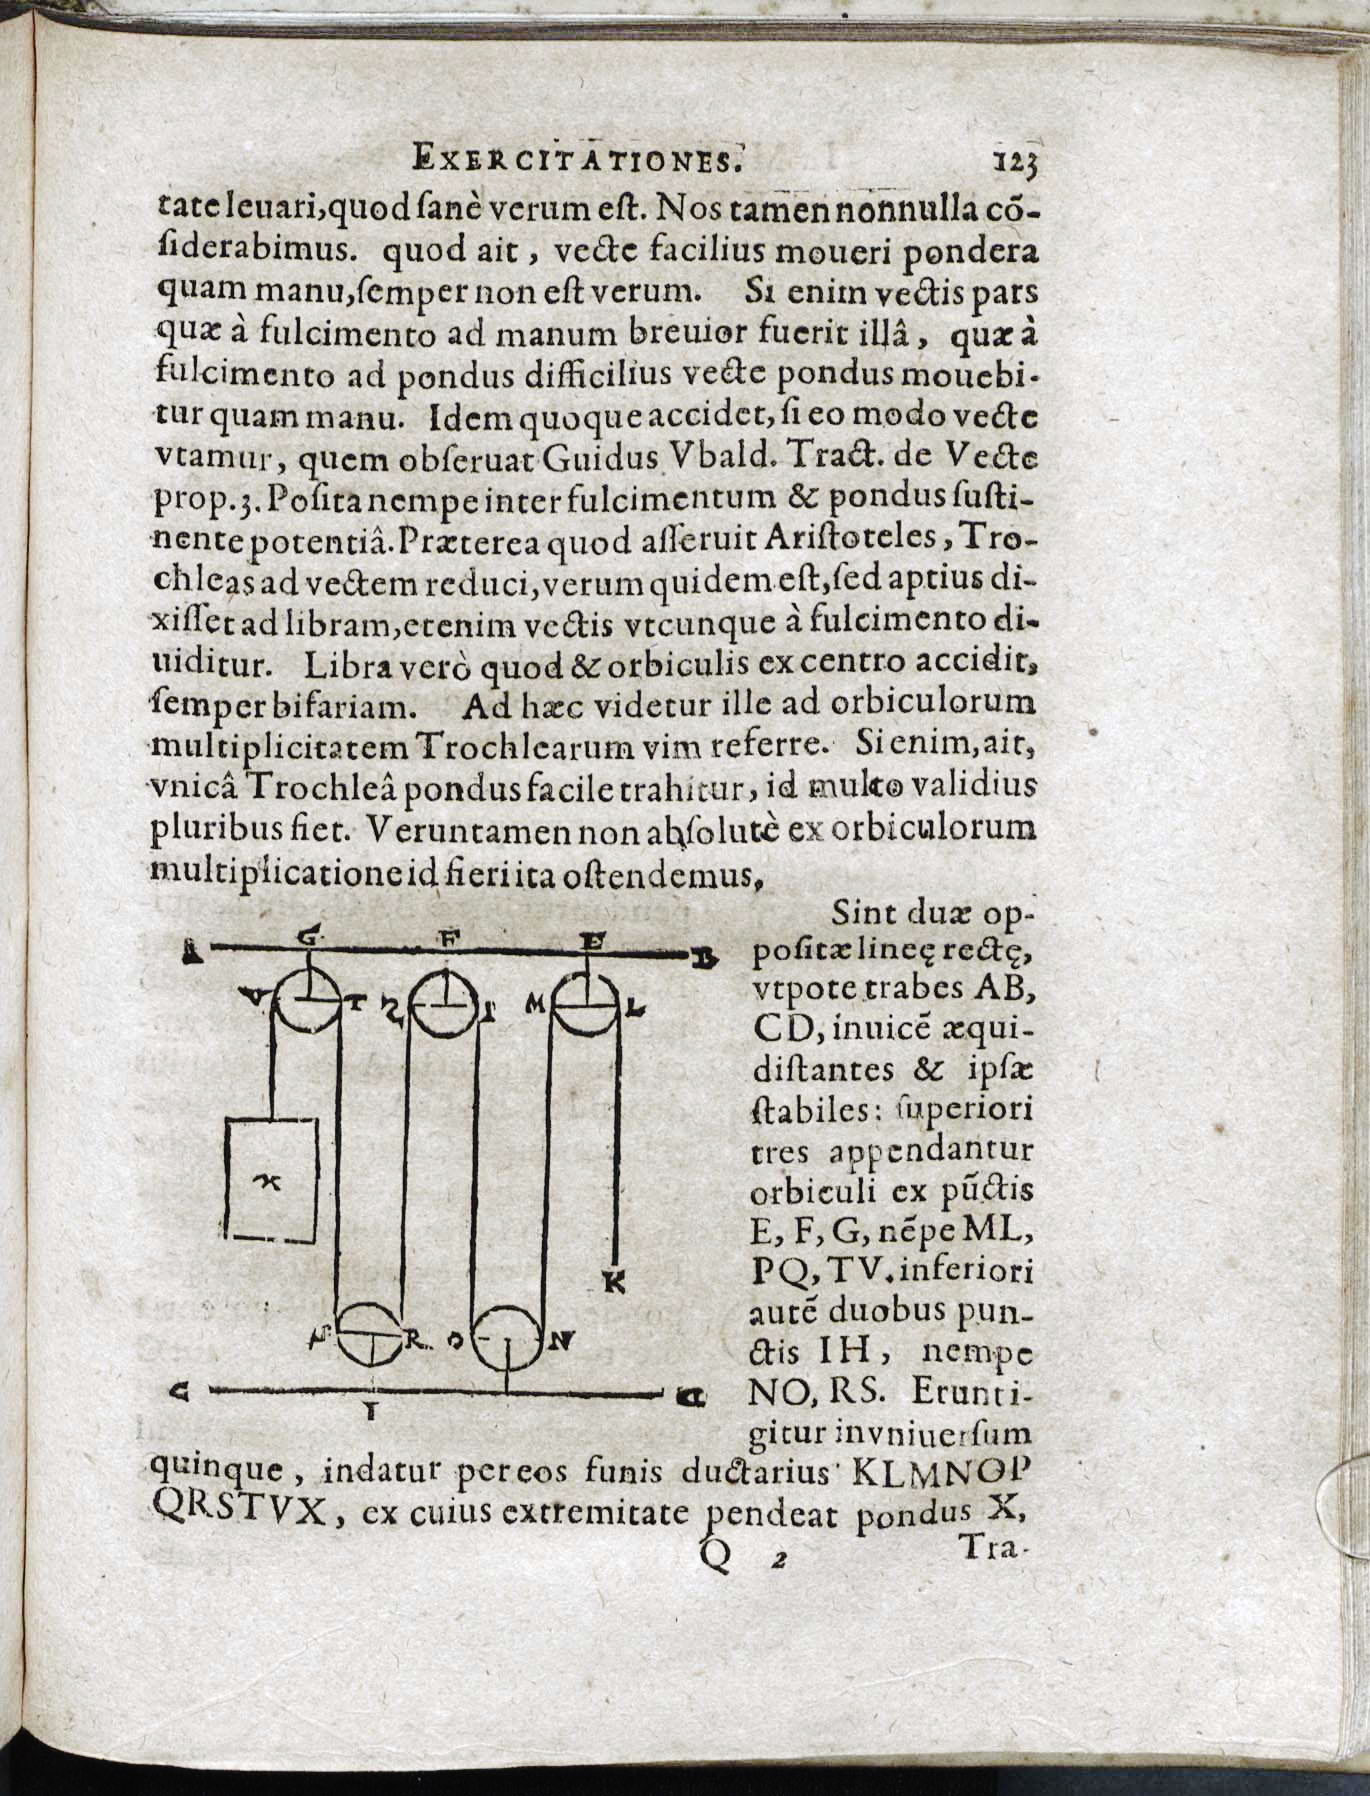 EXERCITATIONES. 123
tate leuari, quod ſanè verum eſt. Nos tamen nonnulla cõ-
ſiderabimus. quod ait, vecte facilius moueri pondera
quam manu, ſemper non eſt verum. Si enim vectis pars
quæ à fulcimento ad manum breuior fuerit illâ, quæ à
fulcimento ad pondus difficilius vecte pondus mouebi-
tur quam manu. Idem quoque accidet, ſi eo modo vecte
vtamur, quem obſeruat Guidus Vbald. Tract. de Vecte
prop. 3. Poſita nempe inter fulcimentum & pondus ſuſti-
nente potentiâ. Præterea quod aſſeruit Ariſtoteles, Tro-
chleas ad vectem reduci, verum quidem eſt, ſed aptius di-
xiſſet ad libram, etenim vectis vtcunque à fulcimento di-
uiditur. Libra verò quod & orbiculis ex centro accidit,
ſemper bifariam. Ad hæc videtur ille ad orbiculorum
multiplicitatem Trochlearum vim referre. Si enim, ait,
vnicâ Trochleâ pondus facile trahitur, id multo validius
pluribus fiet. Veruntamen non abſolutè ex orbiculorum
multiplicatione id fieri ita oſtendemus,
Sint duæ op-
poſitæ lineę rectę,
vtpote trabes AB,
CD, inuicẽ æqui-
diſtantes & ipſæ
ſtabiles: ſuperiori
tres appendantur
orbiculi ex pũctis
E, F, G, nẽpe ML,
PQ, TV. inferiori
autẽ duobus pun-
ctis IH, nempe
NO, RS. Erunt i-
gitur in vniuerſum
A G F E B
V T Q P M L
X
K
S R O N
C I D
quinque, indatur per eos funis ductarius KLMNOP
QRSTVX, ex cuius extremitate pendeat pondus X,
Q 2 Tra-